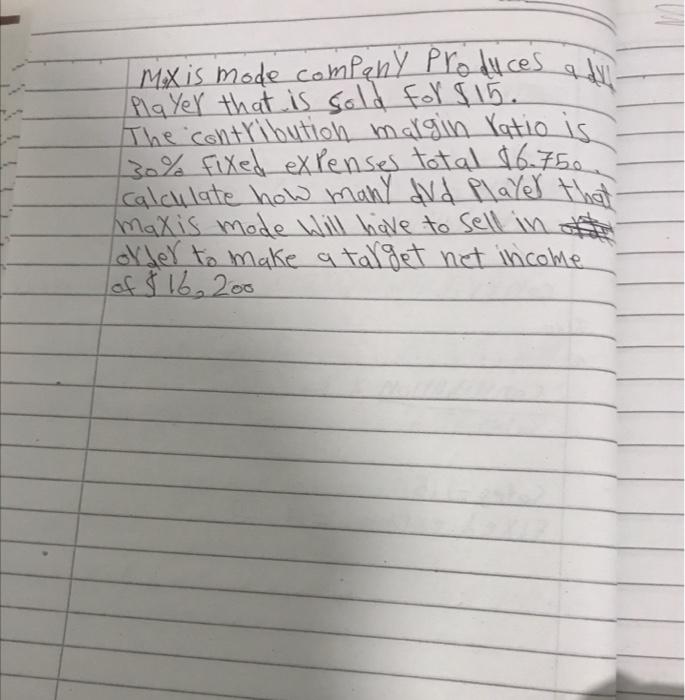 Mxis mode company produces a dv
Player that is sold for $15.
The contribution margin ratio is
30% Fixed expenses total $6.750.
calculate how many dvd player that
maxis mode will have to sell in
order to make a target net income
of $16,200